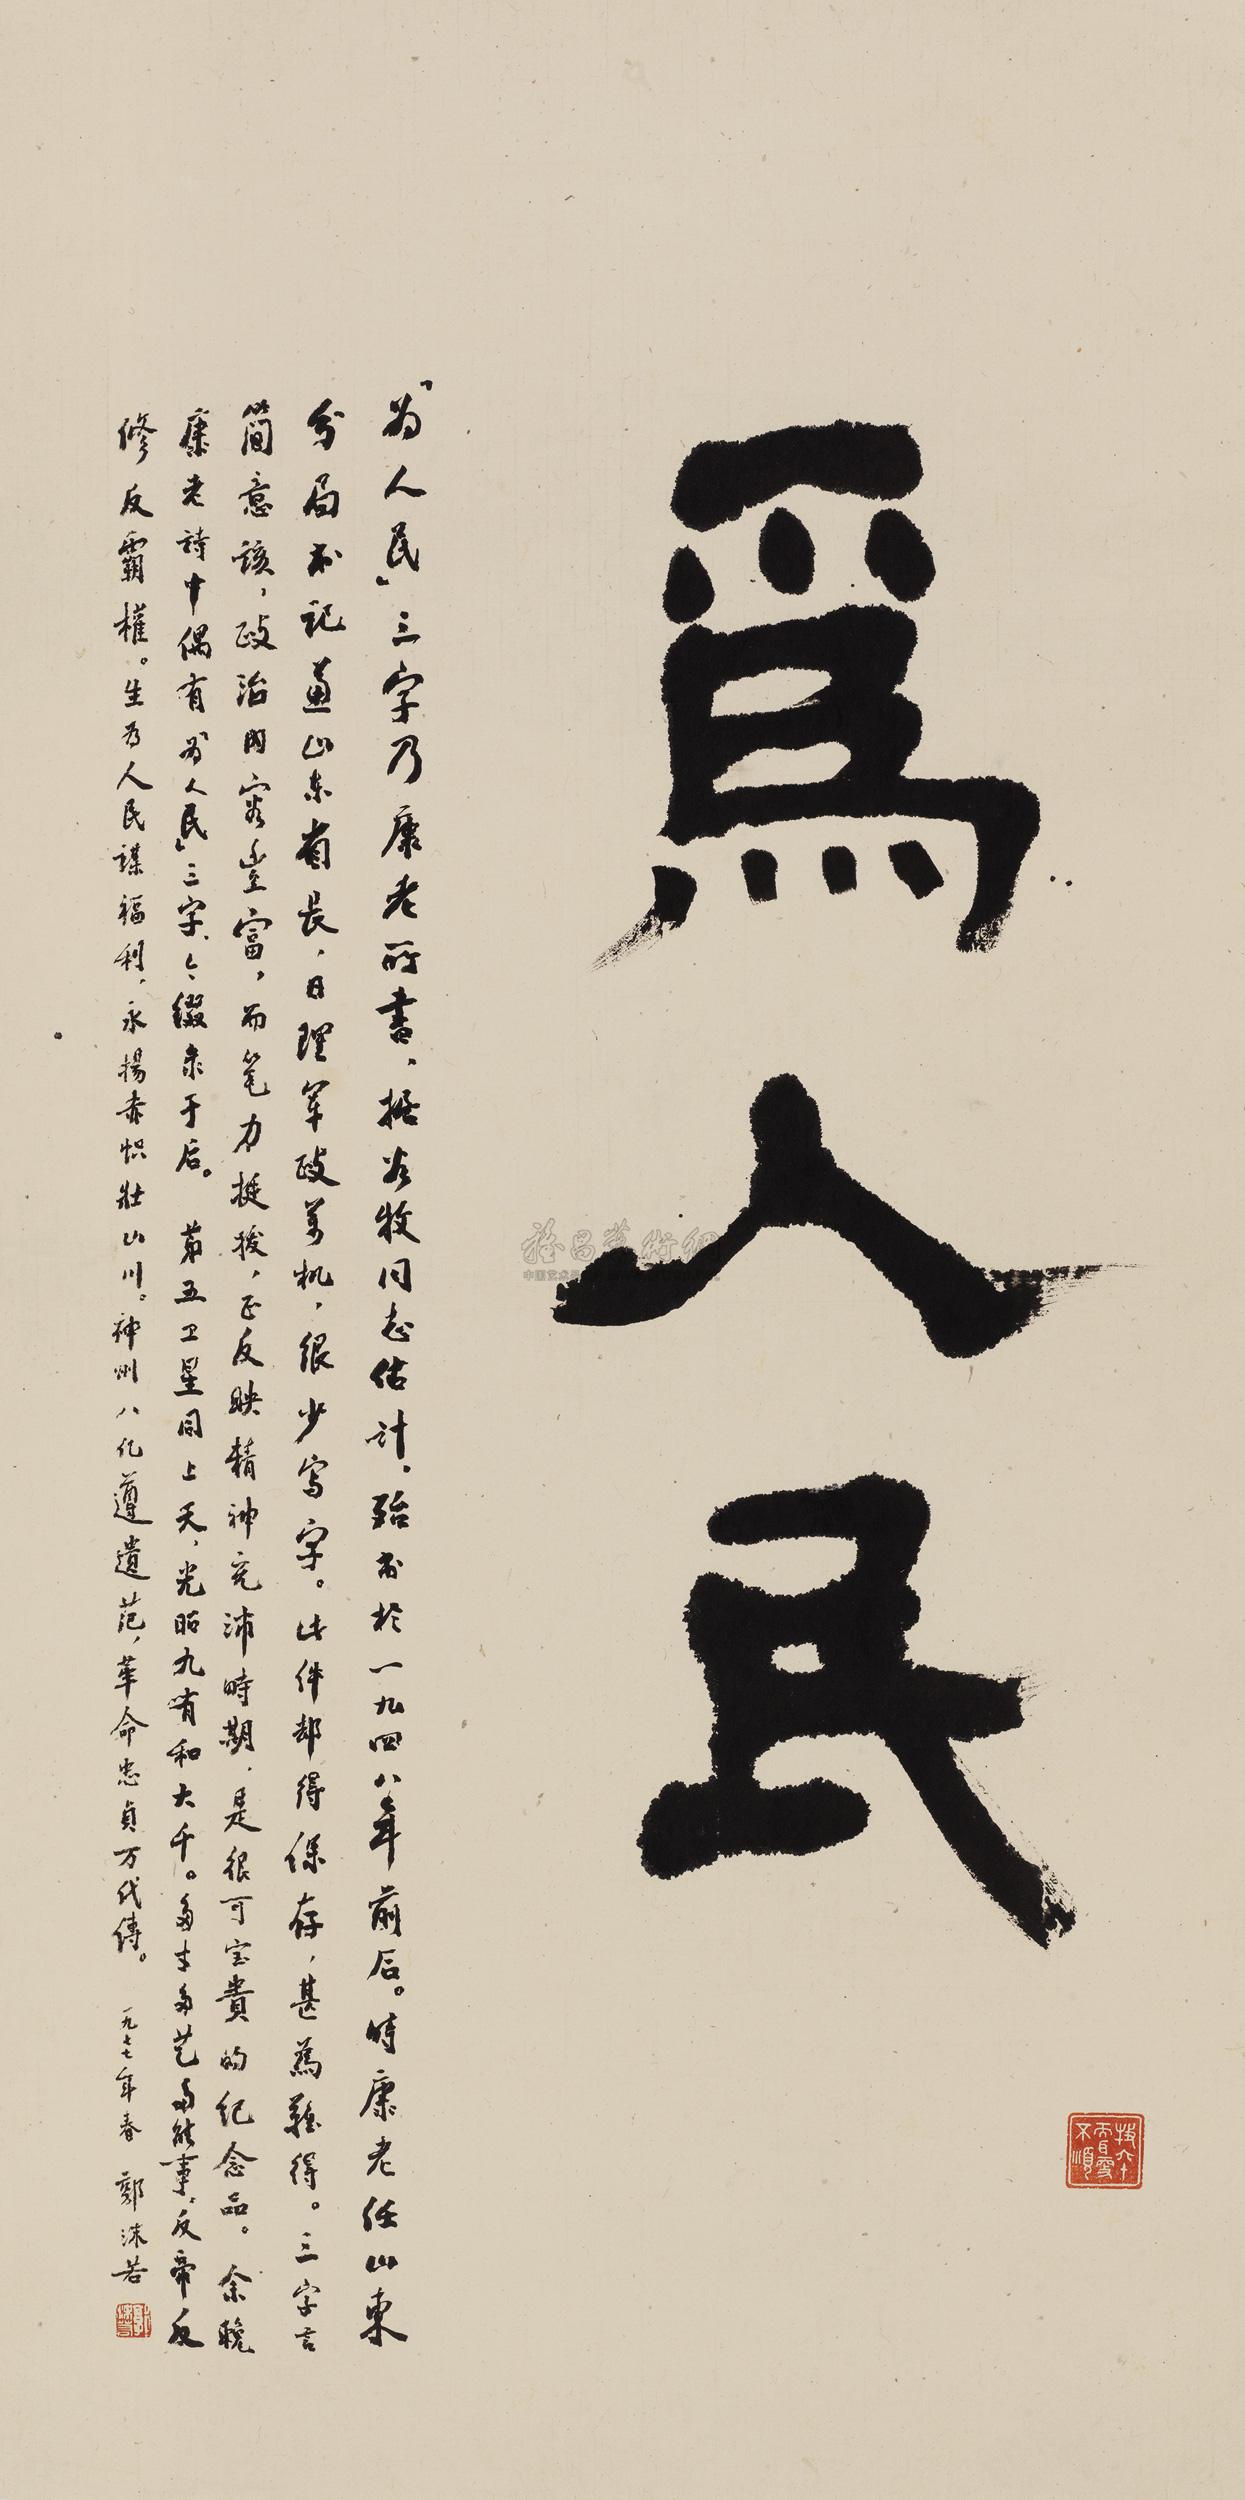 爲人民
「为人民」三字乃康老所書，據谷牧同志估计，殆书於一九四八年前后。時康老任山東
分局书记兼山东省長，日理军政万机，很少写字。此件却得保存，甚為難得。三字言
简意该，政治内容豐富，而笔力挺拔，正反映精神充沛時期，是很可宝贵的纪念品。余晚
康老詩中偶有「为人民」三字，今缀录于后。第五卫星同上天，光昭九有和大千。多才多艺多能事，反帝反
修反霸權。生为人民謀福利，永揚赤帜壯山川。神州八亿遵遺范，革命忠贞万代傳。
一九七七年春 郭沫若